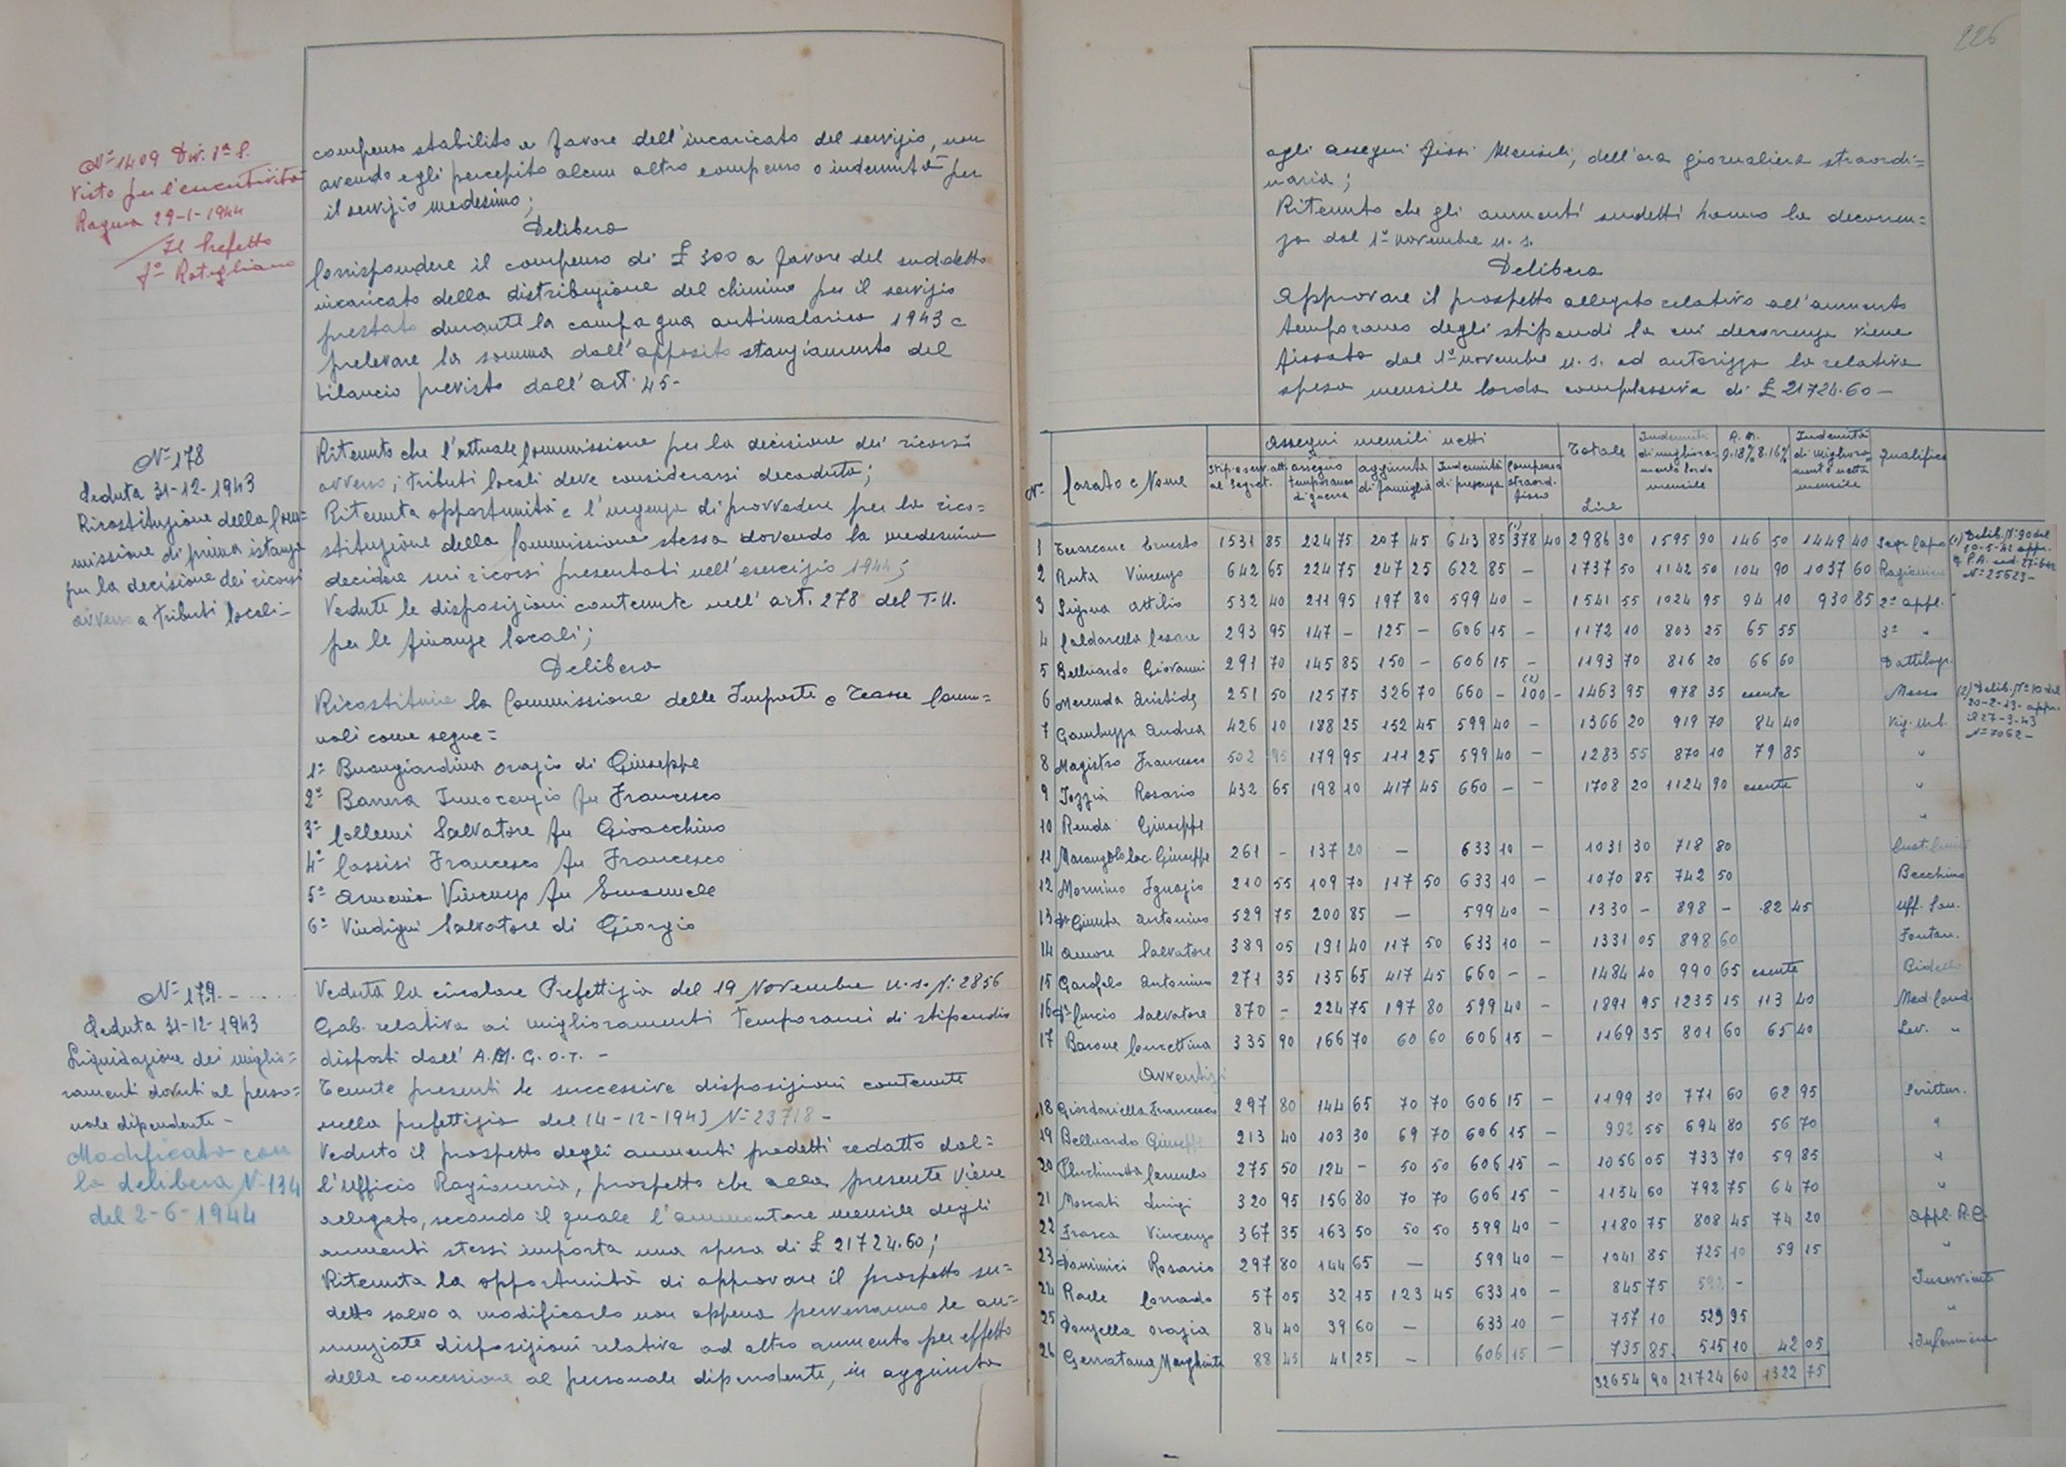 Nº 1409 Div. 1ª S.
Visto per l'esecutività
Ragusa 29-1-1944
Il Prefetto
compenso stabilito a favore dell'incaricato del servizio, non
avendo egli percepito alcun altro compenso o indennità per
il servizio medesimo;
Delibera
Corrispondere il compenso di £ 300 a favore del suddetto
incaricato della distribuzione del chinino per il servizio
prestato durante la campagna antimalarica 1943 e
prelevare la somma dall'apposito stanziamento del
bilancio previsto dall'art. 45-
Nº 178
Seduta 31-12-1943
Ricostituzione della Com=
missione di prima istanza
per la decisione dei ricorsi
avverso a tributi locali-
Ritenuto che l'attuale Commissione per la decisione dei ricorsi
avverso i tributi locali deve considerarsi decaduta;
Ritenuta opportunità e l'urgenza di provvedere per la rico=
stituzione della Commissione stessa dovendo la medesima
decidere sui ricorsi presentati nell'esercizio 1944;
Vedute le disposizioni contenute nell'art. 278 del T.U.
per le finanze locali;
Delibera
Ricostituire la Commissione delle Imposte e Tasse Comu=
nali come segue=
1º Buongiardina Orazio di Giuseppe
2º Barrera Innocenzio fu Francesco
3º Collemi Salvatore fu Gioacchino
4º Cassisi Francesco fu Francesco
5º Armenia Vincenzo fu Emanuele
6º Vindigni Salvatore di Giorgio
Nº 179.-....
Seduta 31-12-1943
Liquidazione dei miglio=
ramenti dovuti al perso=
nale dipendente-
Modificato con
la delibera Nº 134
del 2-6-1944
Veduta la circolare Prefettizia del 19 Novembre u.s. Nº 2856
Gab. relativa ai miglioramenti temporanei di stipendio
disposti dall'A.M.G.O.T. -
Tenute presenti le successive disposizioni contenute
nella prefettizia del 14-12-1943 Nº 23718-
Veduto il prospetto degli aumenti predetti redatto dal=
l'Ufficio Ragioneria, prospetto che alla presente viene
allegato, secondo il quale l'ammontare mensile degli
aumenti stessi importa una spesa di £ 21724.60;
Ritenuta la opportunità di approvare il prospetto su=
detto salvo a modificarlo non appena perverranno le an=
nunziate disposizioni relative ad altro aumento per effetto
della concessione al personale dipendente, in aggiunta
226
agli assegni fissi mensili, dell'ora giornaliera straordi=
naria;
Ritenuto che gli aumenti sudetti hanno la decorren=
za dal 1º novembre u.s.
Delibera
Approvare il prospetto allegato relativo all'aumento
temporaneo degli stipendi la cui decorrenza viene
fissata dal 1º novembre u.s. ed autorizza la relativa
spesa mensile lorda complessiva di £ 21724.60-
Assegni mensili netti
Nº Casato e Nome assegno temporaneo di guerra aggiunta di famiglia Indennità di presenza Compenso straord. fisso Totale Lire Indennità di migliora= mento lordo mensile R.M. 9.18% 8.16% Indennità di migliora= mento netta mensile Qualifica
1 Ernesto 1531 85 224 75 207 45 643 85 (1) 378 40 2986 30 1595 90 146 50 1449 40 Segr. Capo (1) Delib. Nº 90 del
2 Ruta Vincenzo 642 65 224 75 247 25 622 85 - 1737 50 1142 50 104 90 1037 60 Ragioniere
Nº 25623-
3 Pigna Attilio 532 40 211 95 197 80 599 40 - 1541 55 1024 95 94 10 930 85 2º appl.
4 Caldarella Cesare 293 95 147 - 125 - 606 15 - 1172 10 803 25 65 55 3º "
5 Belluardo Giovanni 291 70 145 85 150 - 606 15 - 1193 70 816 20 66 60 Dattilogr.
6 Merenda Aristide 251 50 125 75 326 70 660 - (2) 100 - 1463 95 978 35 esente Messo (2) Delib. Nº 10 del
7 Gambuzza Andrea 426 10 188 25 152 45 599 40 - 1366 20 919 70 84 40 Vig. Urb.
Nº 7062-
8 Magistro Francesco 502 95 179 95 111 25 599 40 - 1283 55 870 10 79 85 "
9 Iozzia Rosario 432 65 198 10 417 45 660 - - 1708 20 1124 90 esente "
10 Renda Giuseppe "
11 Giuseppe 261 - 137 20 - 633 10 - 1031 30 718 80
12 Mormino Ignazio 210 55 109 70 117 50 633 10 - 1070 85 742 50 Becchino
13 Dr Giunta Antonino 529 75 200 85 - 599 40 - 1330 - 898 - 82 45 Uff. San.
14 Amore Salvatore 389 05 191 40 117 50 633 10 - 1331 05 898 60 Fontan.
15 Garofalo Antonino 271 35 135 65 417 45 660 - - 1484 40 990 65 esente Bidello
16 Dr Curcio Salvatore 870 - 224 75 197 80 599 40 - 1891 95 1235 15 113 40 Med. Cond.
17 Barone Concettina 335 90 166 70 60 60 606 15 - 1169 35 801 60 65 40 Lev. "
Avventizi
18 Giordanella Francesco 297 80 144 65 70 70 606 15 - 1199 30 771 60 62 95 Scrittur.
19 Belluardo Giuseppe 213 40 103 30 69 70 606 15 - 992 55 694 80 56 70 "
20 Pluchinotta Carmelo 275 50 124 - 50 50 606 15 - 1056 05 733 70 59 85 "
21 Moscati Luigi 320 95 156 80 70 70 606 15 - 1154 60 792 75 64 70 "
22 Frasca Vincenzo 367 35 163 50 50 50 599 40 - 1180 75 808 45 74 20 appl. R.C.
23 Dominici Rosario 297 80 144 65 - 599 40 - 1041 85 725 10 59 15 "
24 Raele Corrado 57 05 32 15 123 45 633 10 - 845 75 592 - Inserviente
25 Donzella Orazia 84 40 39 60 - 633 10 - 757 10 529 95 "
26 Gerratana Margherita 88 45 41 25 - 606 15 - 735 85 515 10 42 05 Infermiera
32654 90 21724 60 1322 75